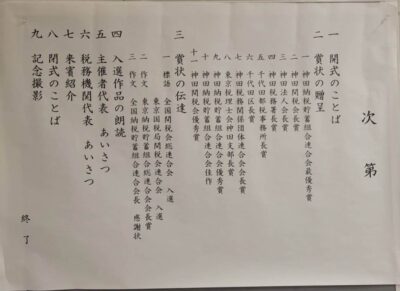 次第
一 開式のことば
二 賞状の贈呈
一 神田納税貯蓄組合連合会最優秀賞
二 神田間税会会長賞
三 神田法人会会長賞
四 神田税務署長賞
五 千代田都税事務所長賞
六 千代田区長賞
七 神田税務関係団体連合会会長賞
八 東京税理士会神田支部長賞
九 神田納税貯蓄組合連合会優秀賞
十 神田納税貯蓄組合連合会佳作
十一 神田間税会優秀賞
三 賞状の伝達
一 標語 全国間税会総連合会 入選
東京国税局間税会連合会 入選
二 作文 東京納税貯蓄組合総連合会会長賞
三 作文 全国納税貯蓄組合連合会会長 感謝状
四 入選作品の朗読
五 主催者代表 あいさつ
六 税務機関代表 あいさつ
七 来賓紹介
八 閉式のことば
九 記念撮影
終了